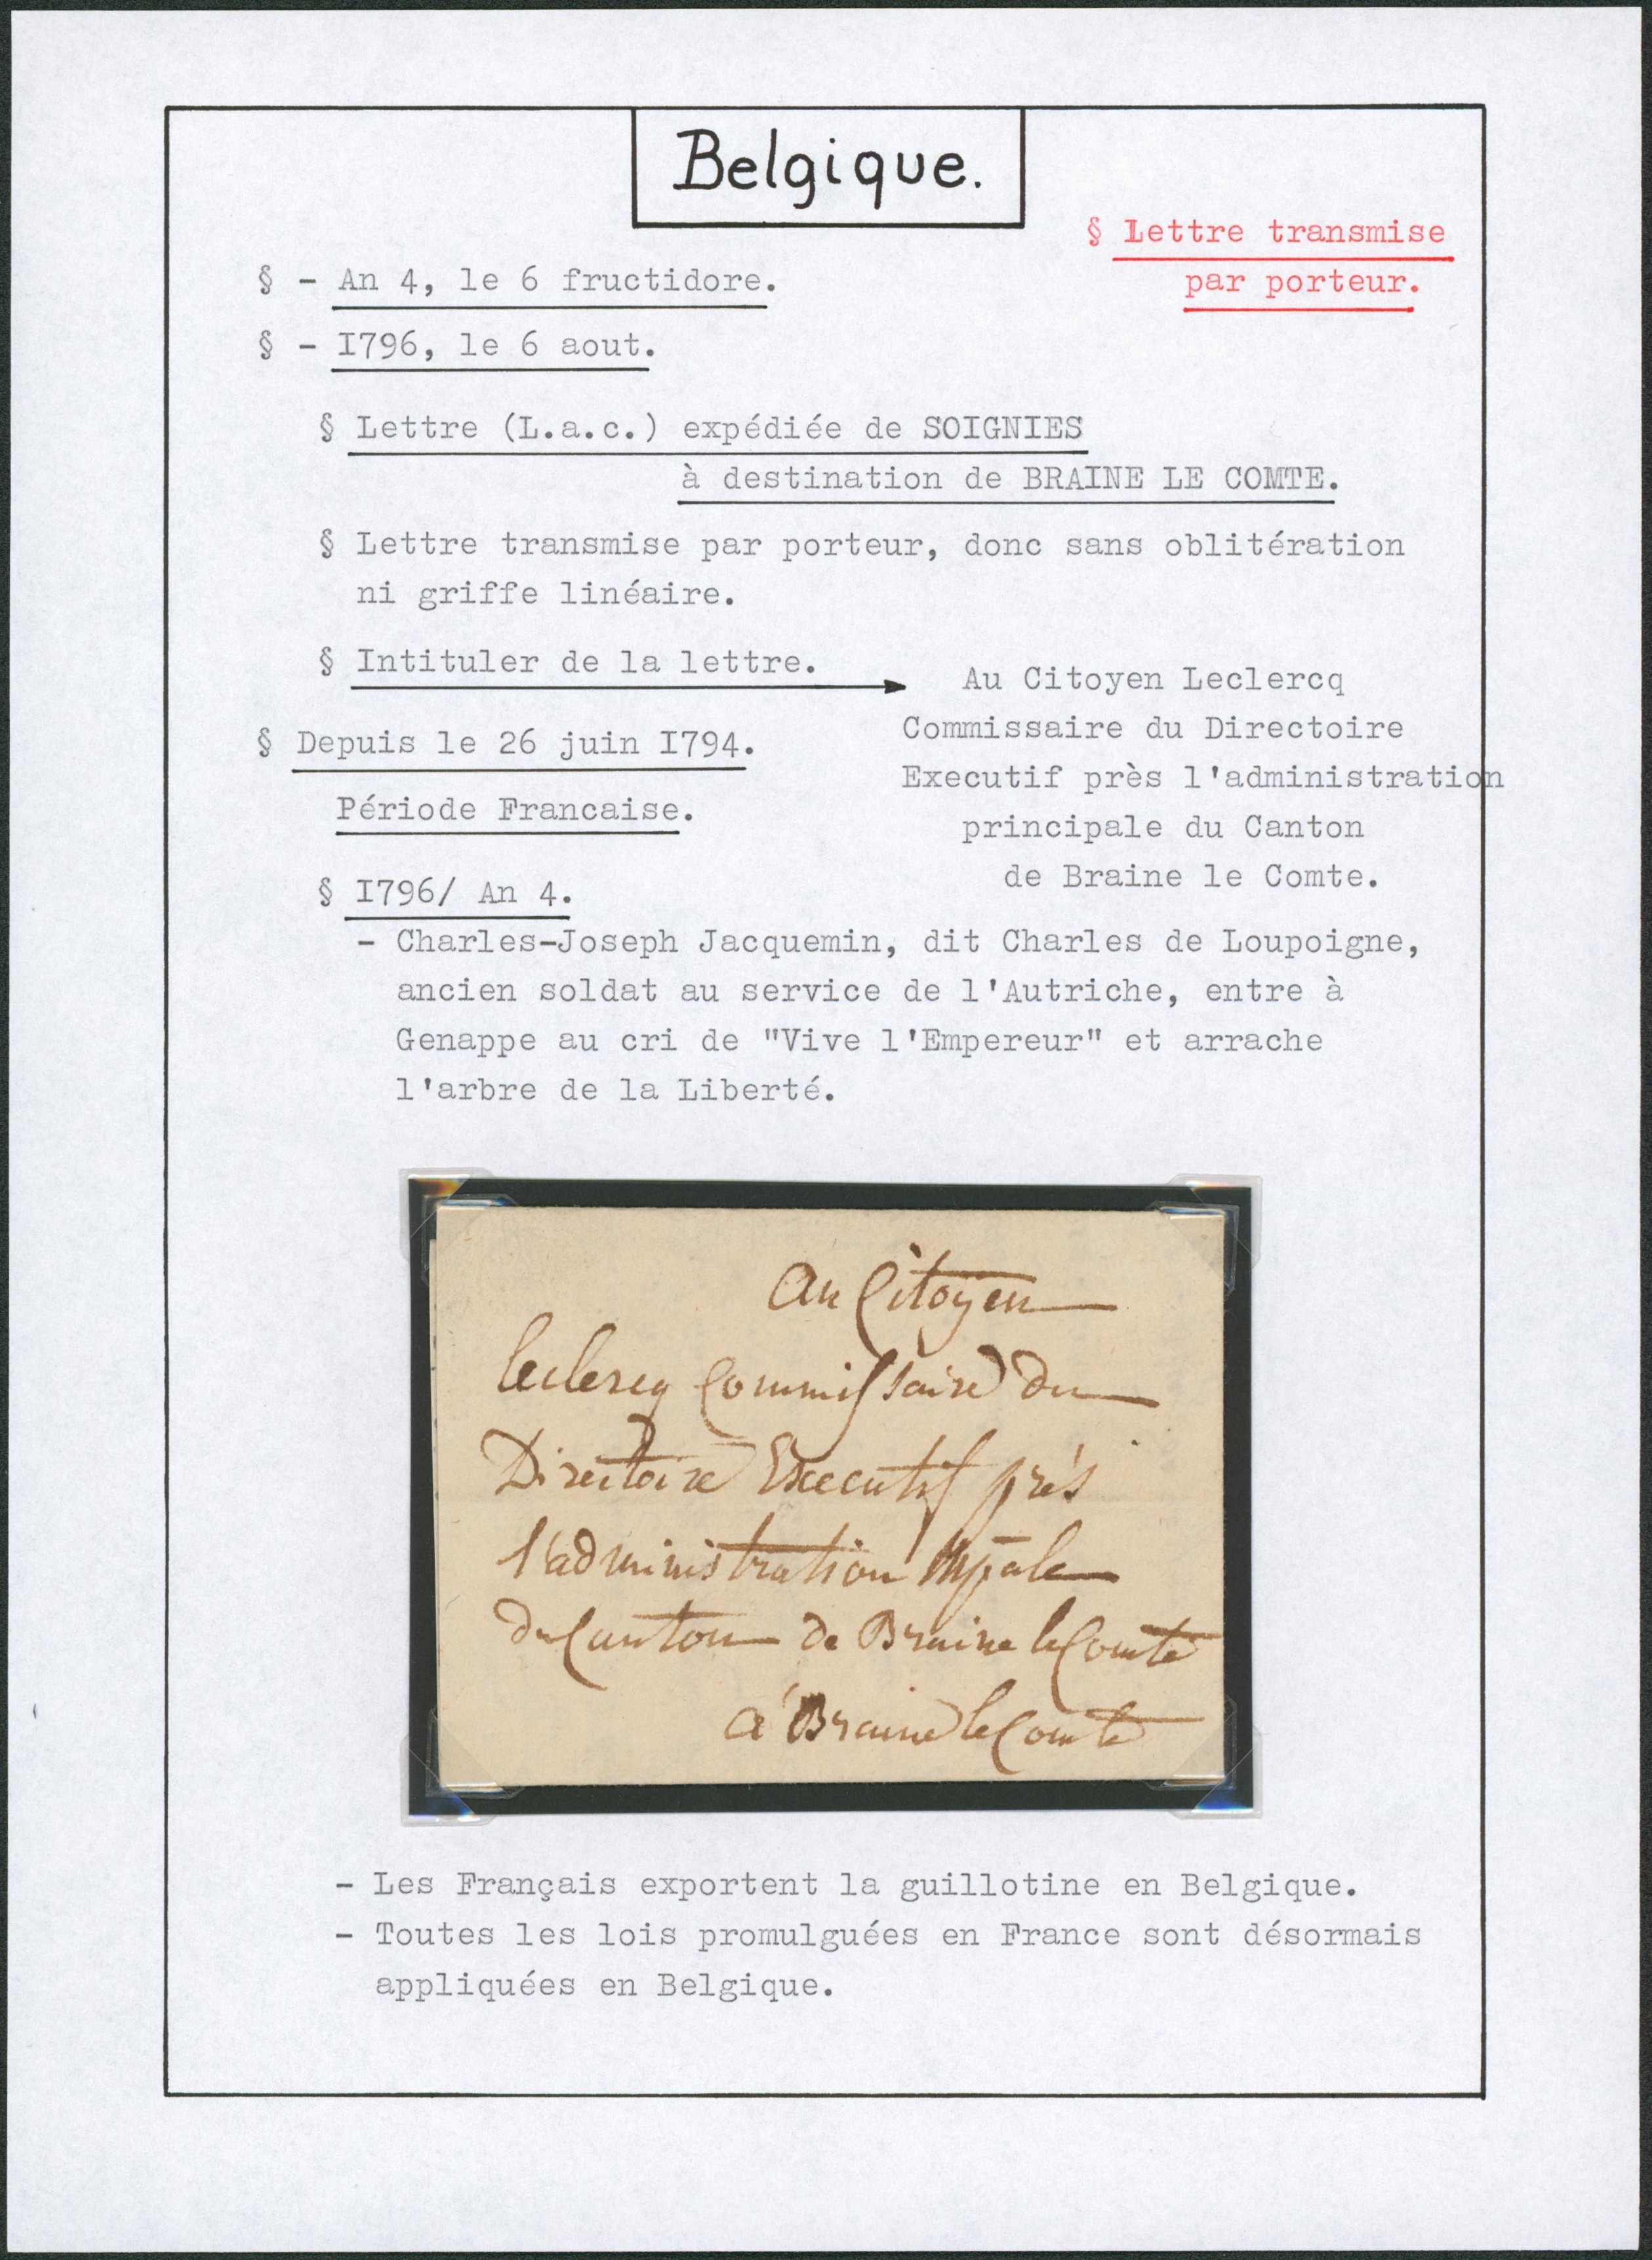 Belgique.
§ Lettre transmise
par porteur.
§ - An 4, le 6 fructidore.
§ - I796, le 6 aout.
§ Lettre (L.a.c.) expédiée de SOIGNIES
à destination de BRAINE LE COMTE.
§ Lettre transmise par porteur, donc sans oblitération
ni griffe linéaire.
§ Intituler de la lettre.
Au Citoyen Leclercq
Commissaire du Directoire
Executif près l'administration
principale du Canton
de Braine le Comte.
§ Depuis le 26 juin I794.
Période Francaise.
§ I796/ An 4.
- Charles-Joseph Jacquemin, dit Charles de Loupoigne,
ancien soldat au service de l'Autriche, entre à
Genappe au cri de "Vive l'Empereur" et arrache
l'arbre de la Liberté.
Au Citoyen
leclercq Commissaire du
Directoire Executif près
l'administration Mpale
du Canton de Braine le Comte
à Braine le Comte
- Les Français exportent la guillotine en Belgique.
- Toutes les lois promulguées en France sont désormais
appliquées en Belgique.